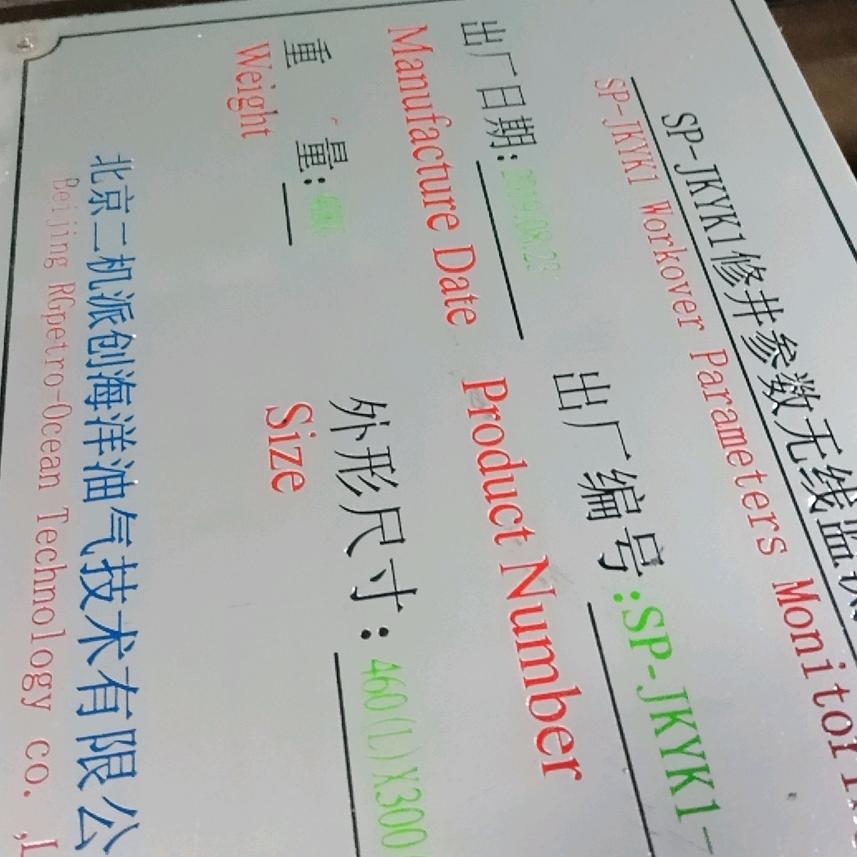 SP-JKYK1修井参数无线监
SP-JKYK1 Workover Parameters Monitor
出厂日期:2019.08.23
出厂编号:SP-JKYK1-
Manufacture Date
Product Number
重 量:
外形尺寸:460(L)X300
Weight
Size
北京二机派创海洋油气技术有限公
Beijing RGpetro-Ocean Technology co. ,L